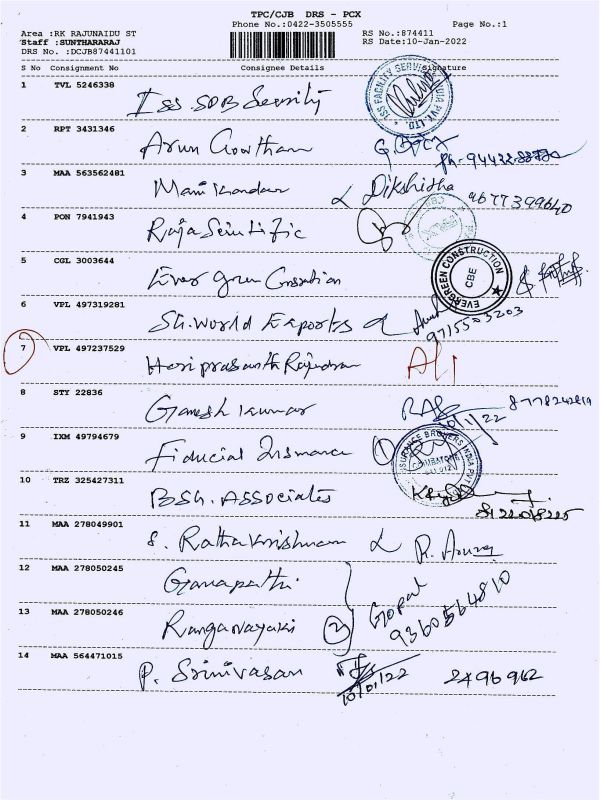 TPC/CJB DRS - PCX
Phone No.:0422-3505555 Page No.:1
Area :RK RAJUNAIDU ST RS No.:874411
Staff :SUNTHARARAJ RS Date:10-Jan-2022
DRS No. :DCJB87441101
S No Consignment No Consignee Details Signature
1 TVL 5246338 ISS SDB Security
ISS FACILITY SERVICES INDIA PVT. LTD.
2 RPT 3431346 Arun Gowtham
3 MAA 563562481 Manikandan Dikshidha 9677399640
4 PON 7941943 Raja Scientific
5 CGL 3003644 Ever green Constration
EVERGREEN CONSTRUCTION CBE
6 VPL 497319281 Sh. World Exports
9715503203
7 VPL 497237529 Hari prasanth Rajendran
8 STY 22836 Ganesh Kumar 8778242819
10/1/22
9 IXM 49794679 Fiducial Insurance 1
INSURANCE BROKERS INDIA PVT
COIMBATORE
10 TRZ 325427311 BSh. Associates
11 MAA 278049901 S. Rathakrishnan
12 MAA 278050245 Ganapathi
Gopal
9360564810
13 MAA 278050246 Ranganayaki 2
14 MAA 564471015 P. Srinivasan 2496962
10/01/22